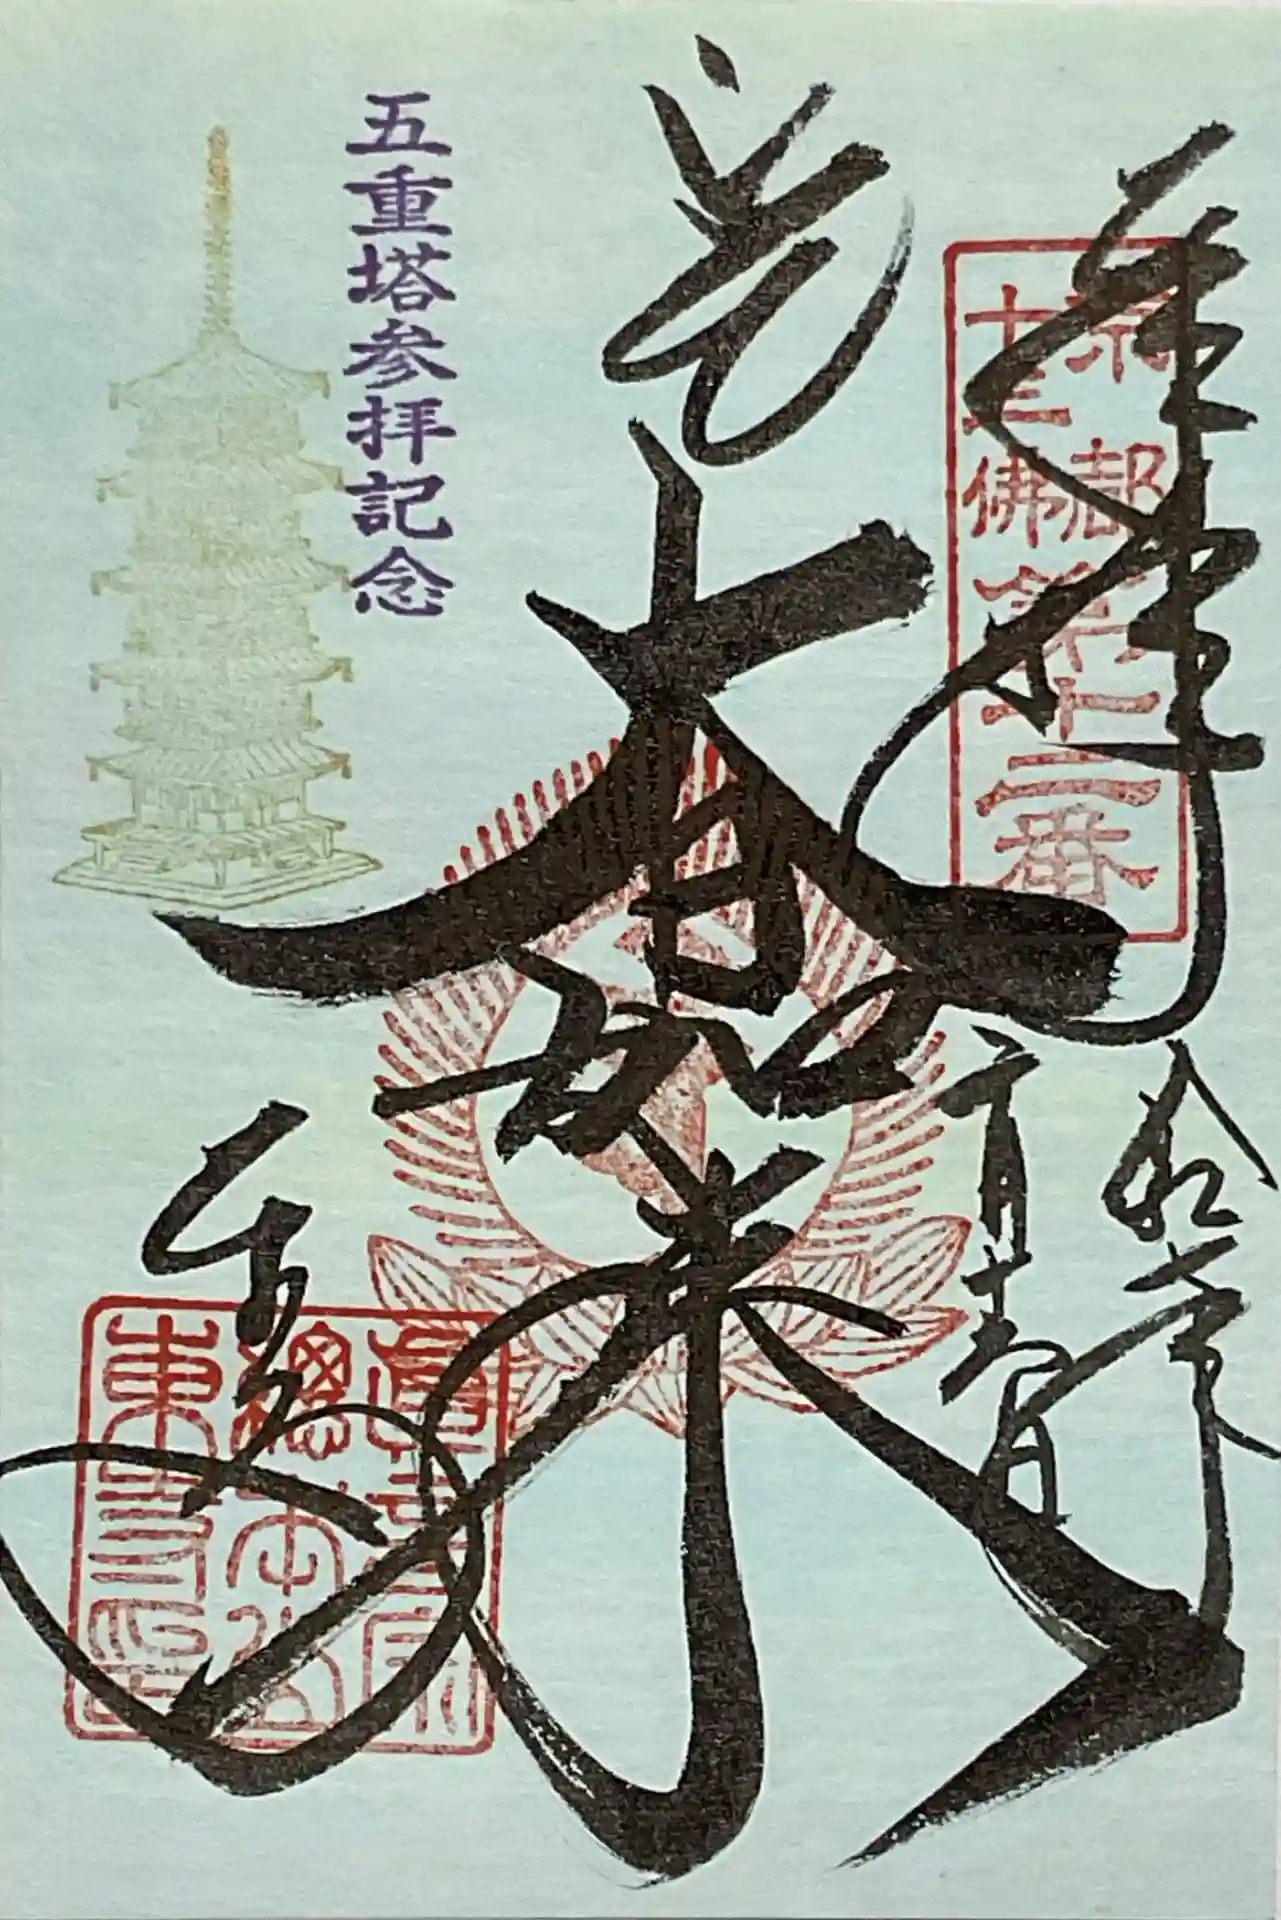 奉拝
京都
十三佛
第十二番
大日如来
五重塔参拝記念
東寺
眞言宗
總本山
東寺印